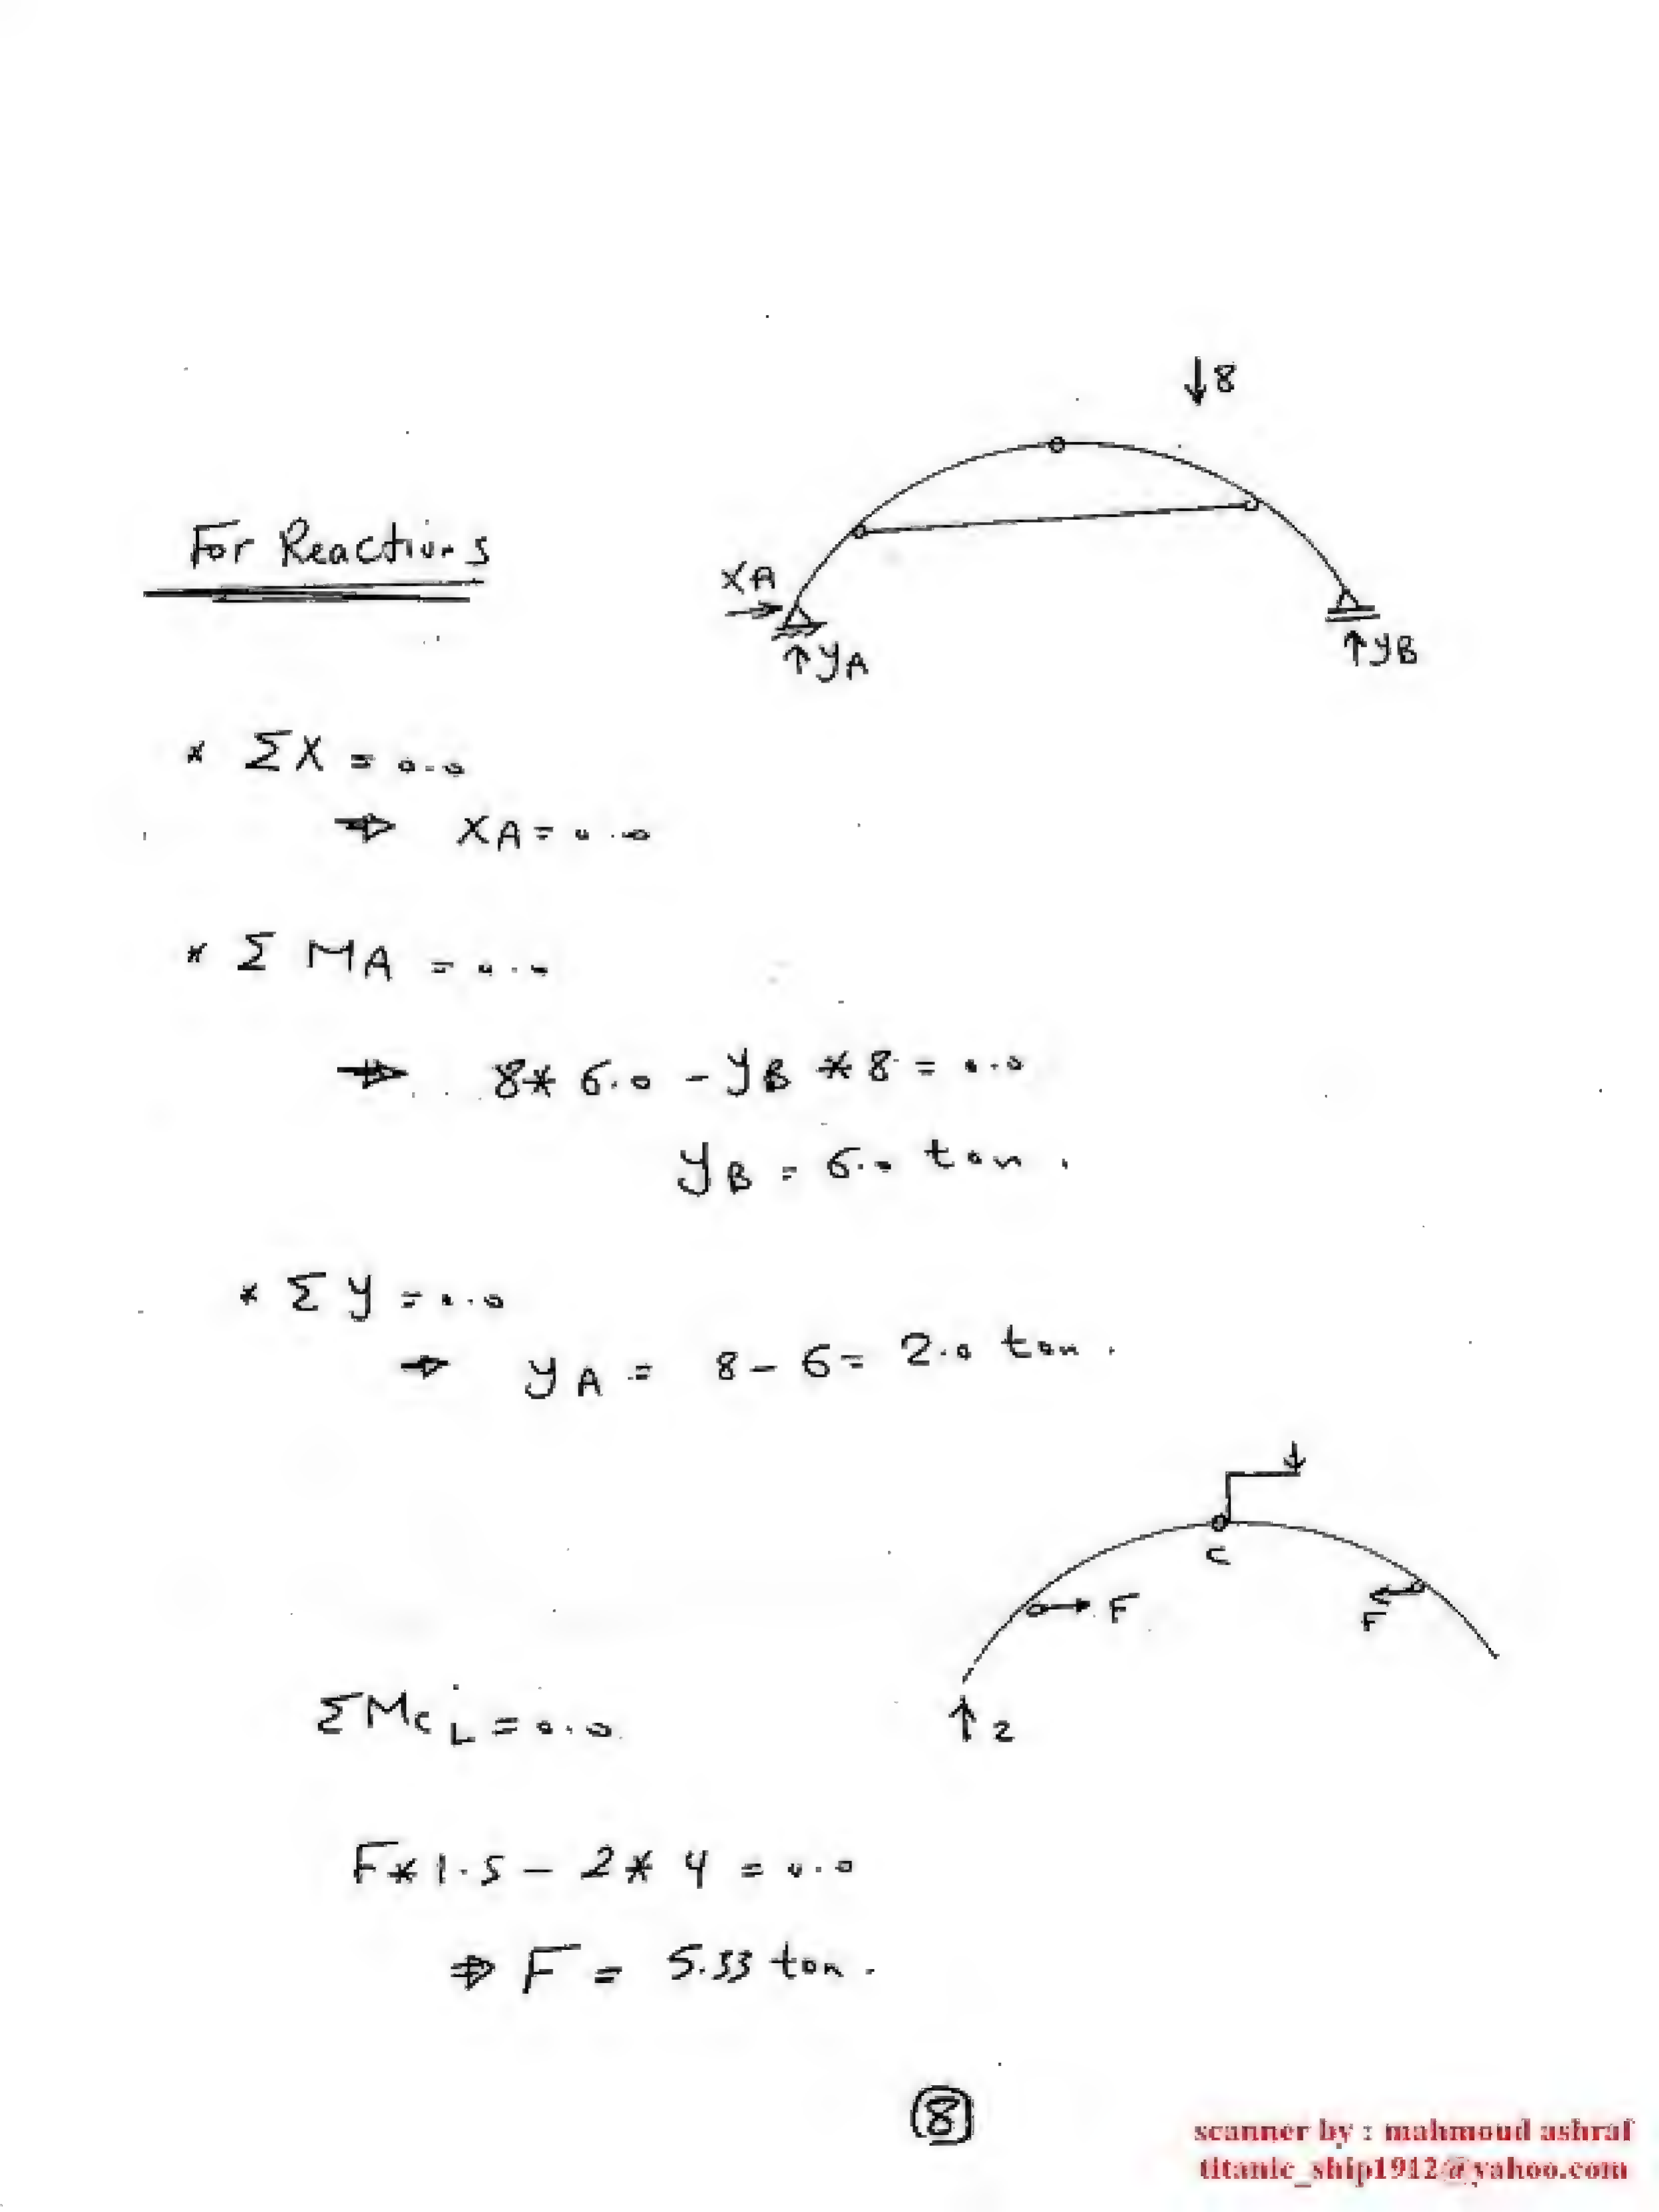 ↓8
For Reactions
XA
yA
yB
* ΣX = 0.0
⇒ XA = 0.0
* Σ MA = 0.0
⇒ 8* 6.0 - yB * 8 = 0.0
yB = 6.0 ton.
* Σ y = 0.0
⇒ yA = 8 - 6 = 2.0 ton.
C
F
F
↑ 2
ΣMC L = 0.0
F* 1.5 - 2* 4 = 0.0
⇒ F = 5.33 ton.
8
scanner by : mahmoud ashraf
titanic_ship1912@yahoo.com